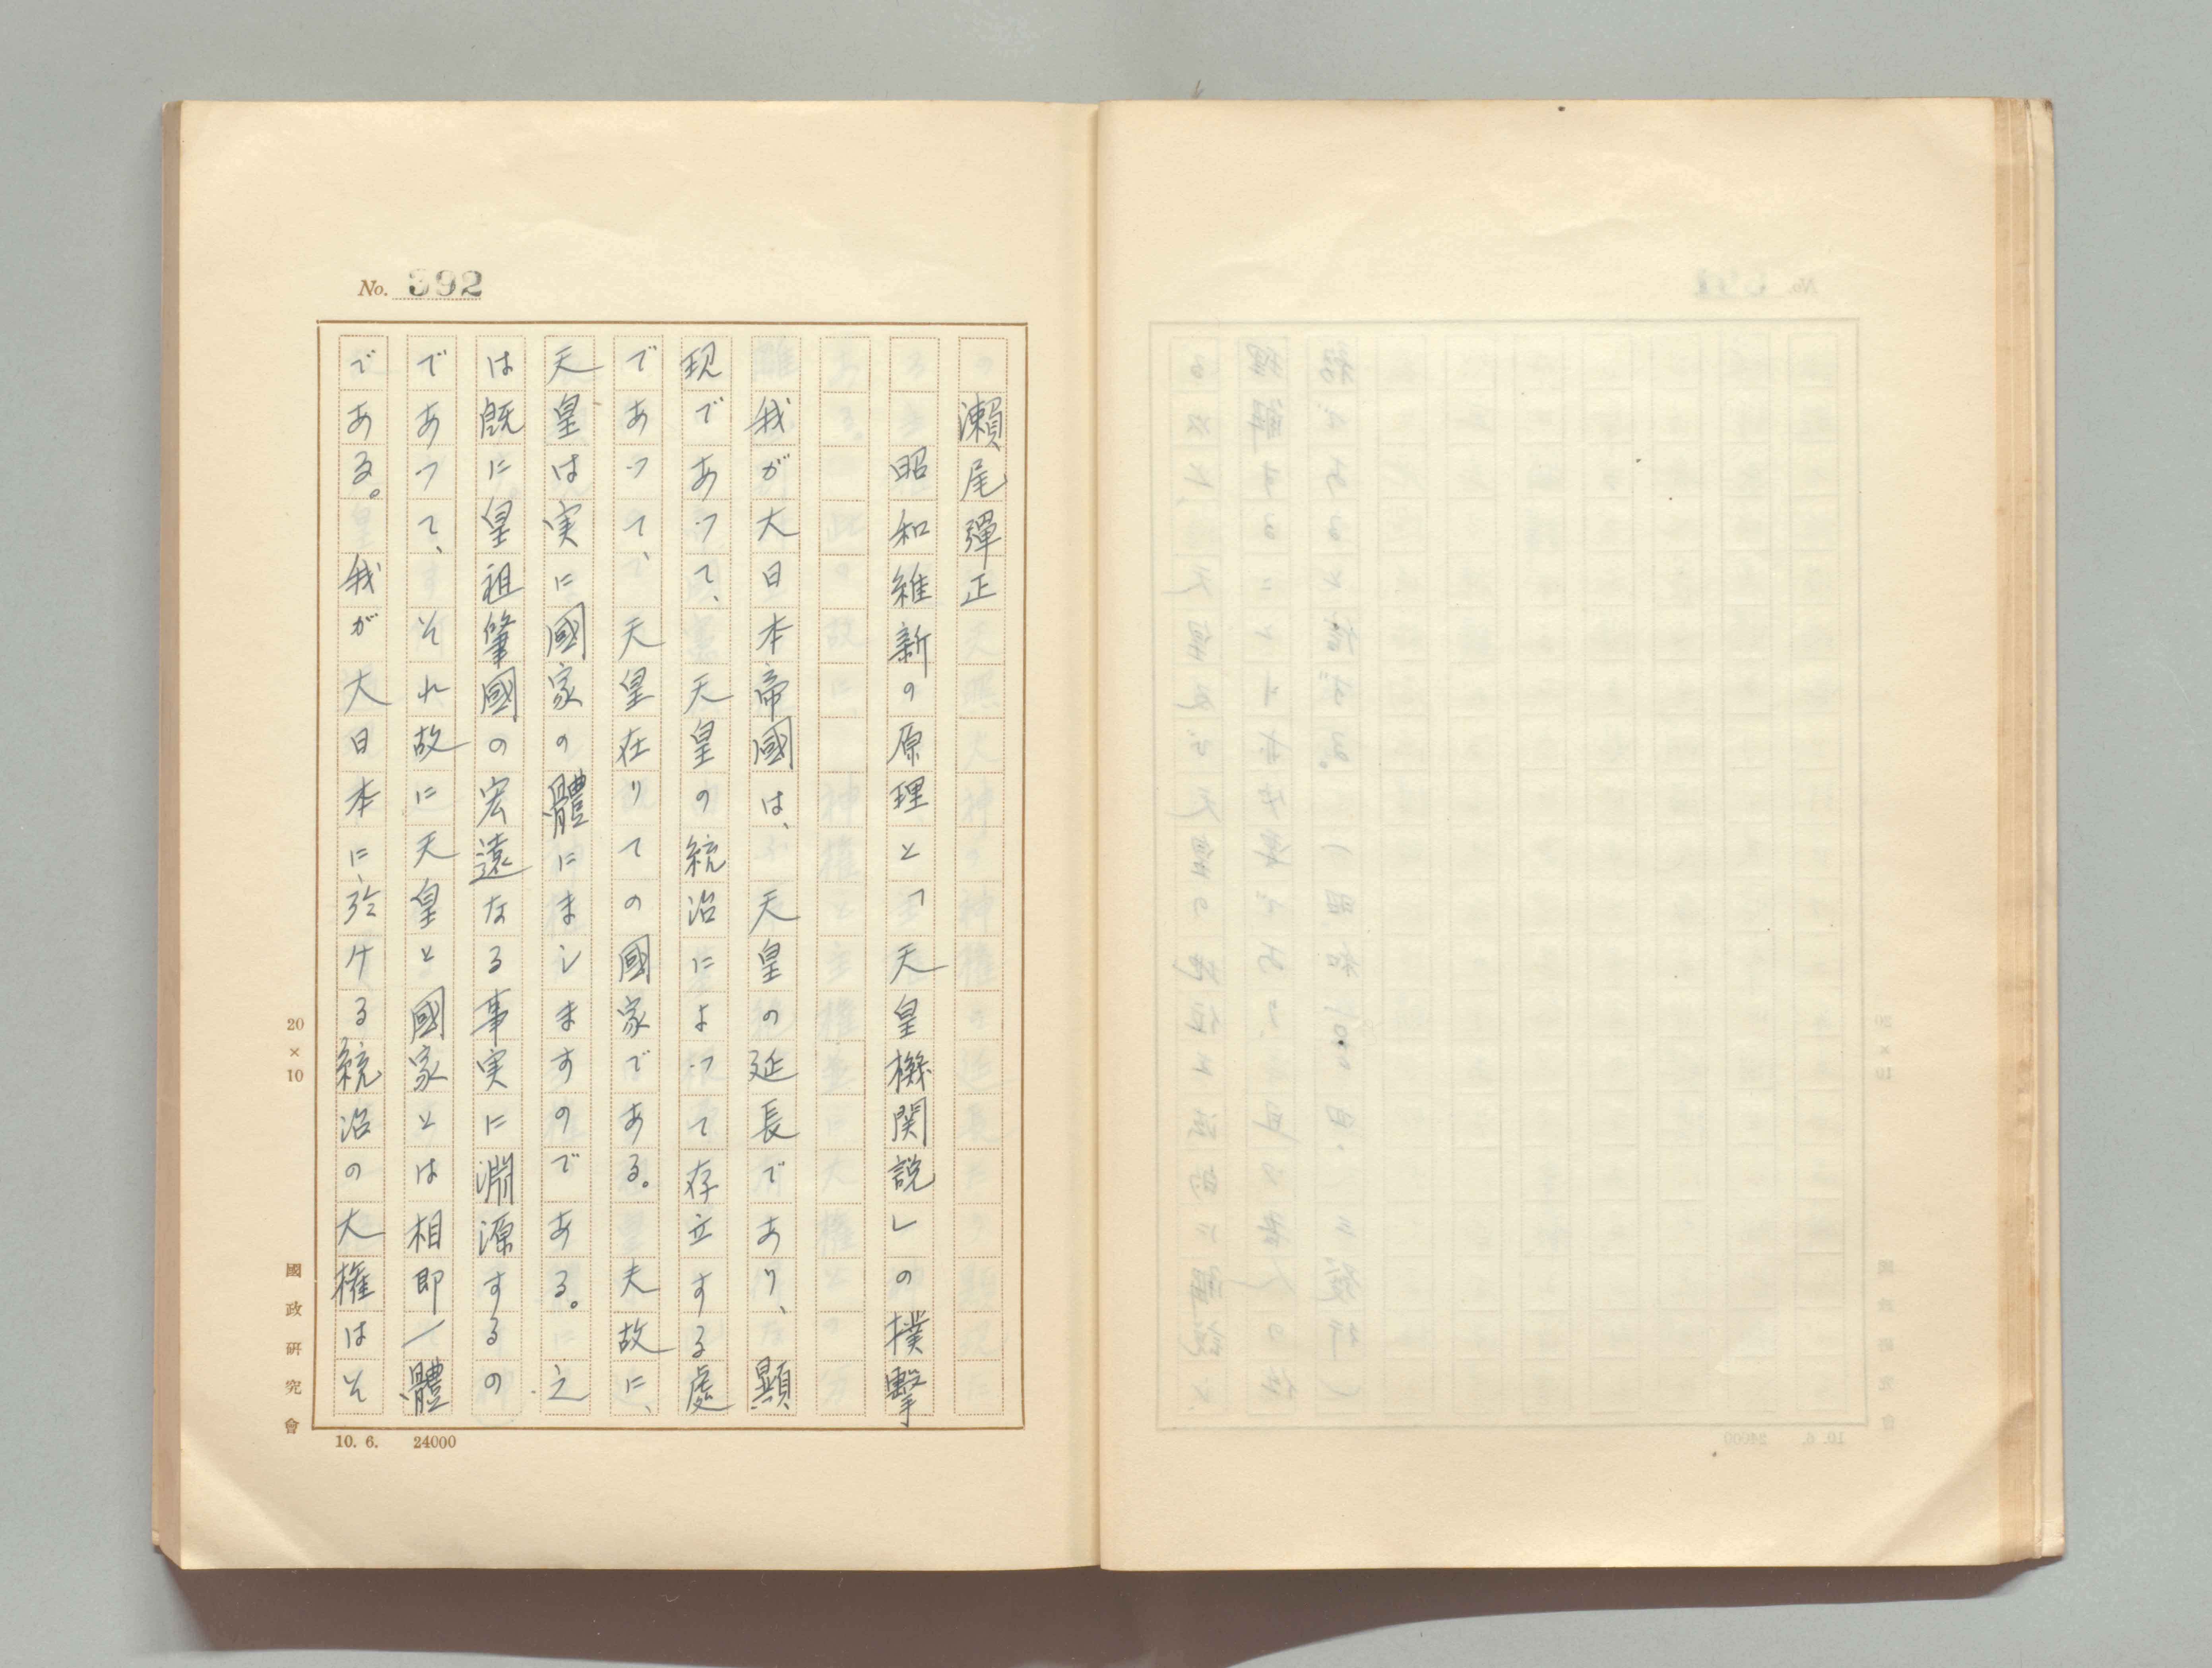 No. 392
瀨尾彈正
昭和維新の原理と「天皇機関説」の撲擊
我が大日本帝國は、天皇の延長であり、顯
現であつて、天皇の統治によつて存立する處
であつて、天皇在りての國家である。夫故に、
天皇は実に國家の體にましますのである。之
は既に皇祖肇國の宏遠なる事実に淵源するの
であつて、それ故に天皇と國家とは相即一體
である。我が大日本に於ける統治の大権はそ
20×10
國政研究會
10. 6. 24000